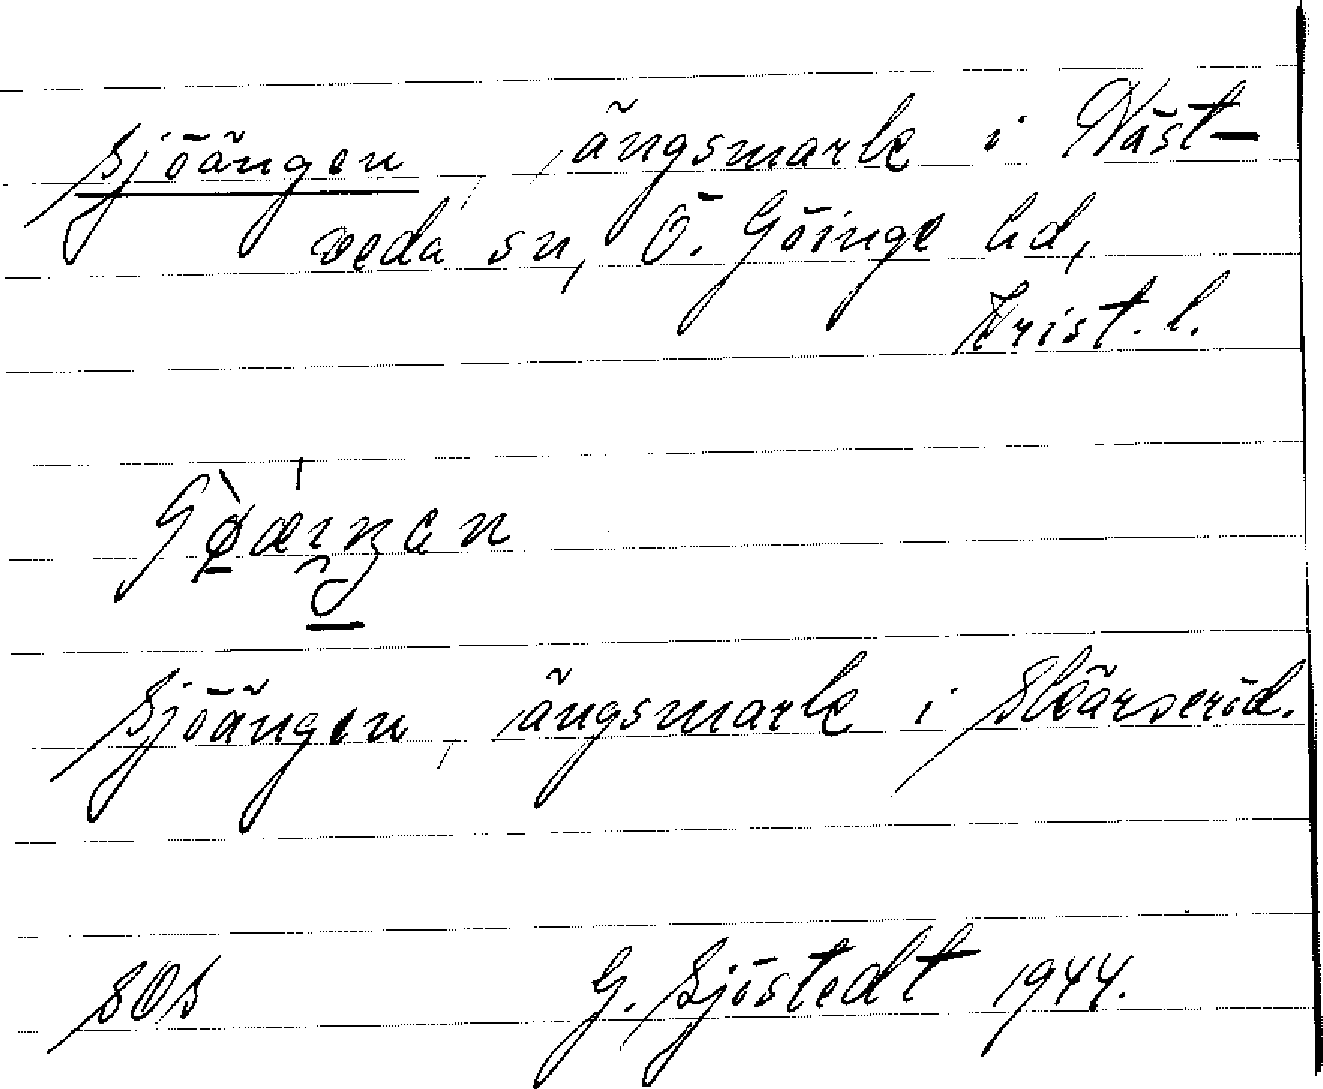 Sjöängen, ängsmark i Näst-
veda sn, Ö. Göinge hd,
Krist. l.
Sjöängen, ängsmark i Skärseröd.
SOS G. Sjöstedt 1944.